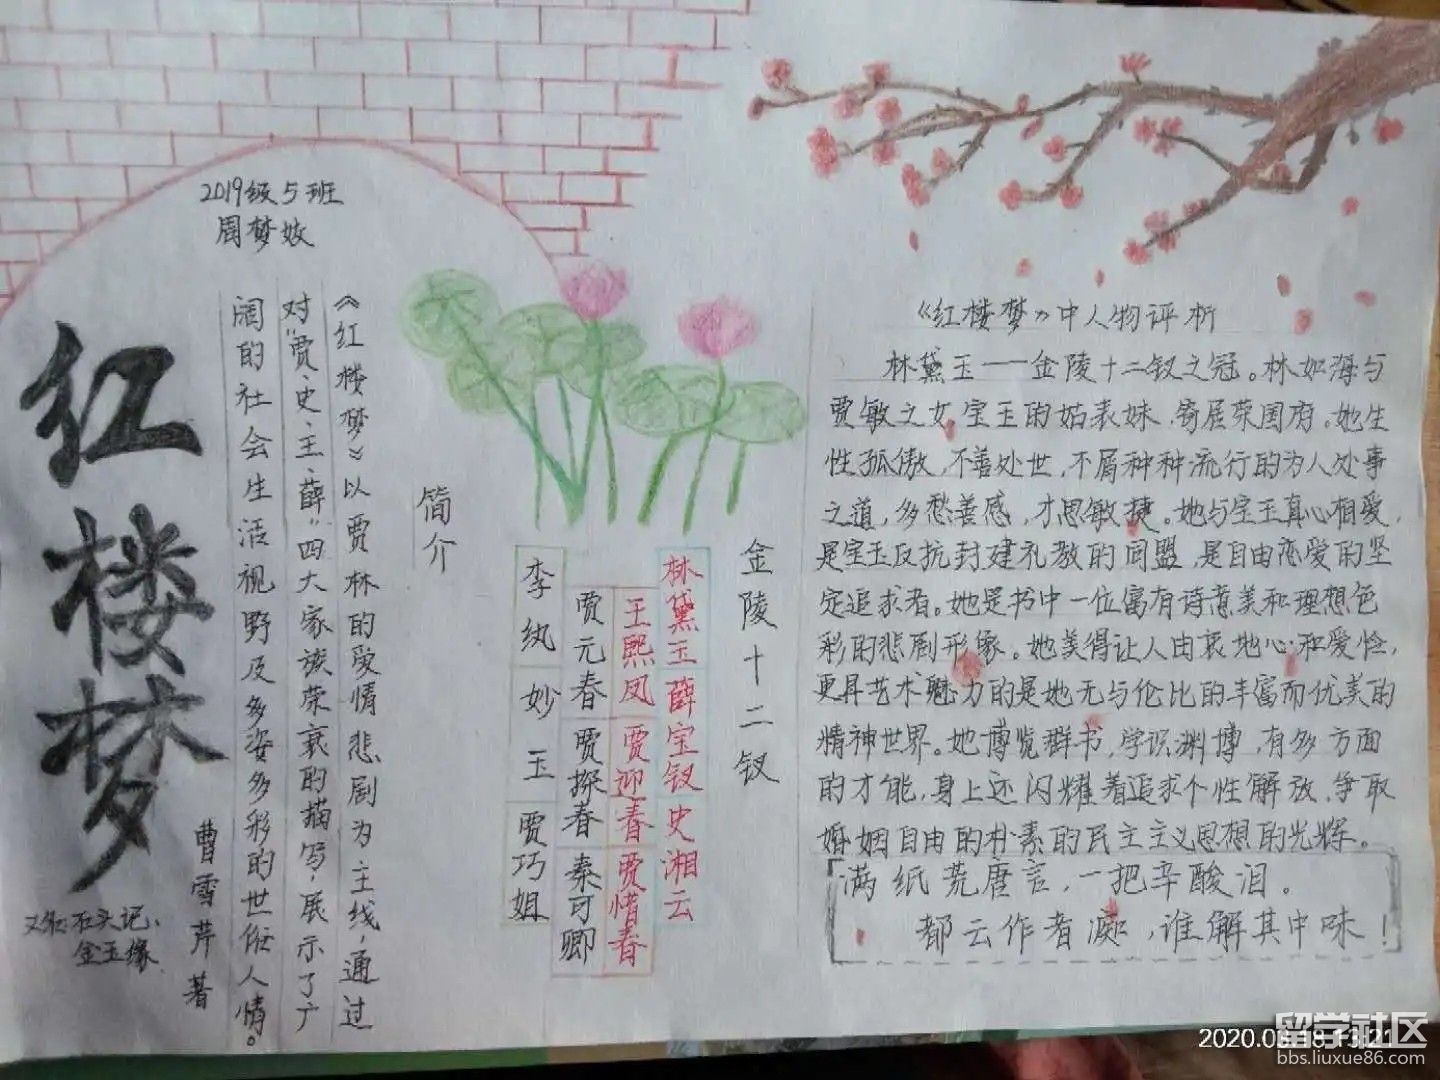 2019级5班
周梦
红楼梦
曹雪芹著
又名:石头记、
金玉缘
简介
《红楼梦》以贾林的爱情悲剧为主线,通过
对“贾、史、王、薛”四大家族荣衰的描写,展示了广
阔的社会生活视野及多姿多彩的世俗人情。
金陵十二钗
林黛玉 薛宝钗 史湘云
王熙凤 贾迎春 贾惜春
贾元春 贾探春 秦可卿
李纨 妙玉 贾巧姐
《红楼梦》中人物评析
林黛玉——金陵十二钗之冠。林如海与
贾敏之女,宝玉的姑表妹,寄居荣国府。她生
性孤傲,不善处世,不屑种种流行的为人处事
之道,多愁善感,才思敏捷。她与宝玉真心相爱,
是宝玉反抗封建礼教的同盟,是自由恋爱的坚
定追求者。她是书中一位富有诗意美和理想色
彩的悲剧形象。她美得让人由衷地心和爱怜,
更具艺术魅力的是她无与伦比的丰富而优美的
精神世界。她博览群书,学识渊博,有多方面
的才能,身上还闪耀着追求个性解放、争取
婚姻自由的朴素的民主主义思想的光辉。
满纸荒唐言,一把辛酸泪。
都云作者痴,谁解其中味!
留学社区
bbs.liuxue86.com